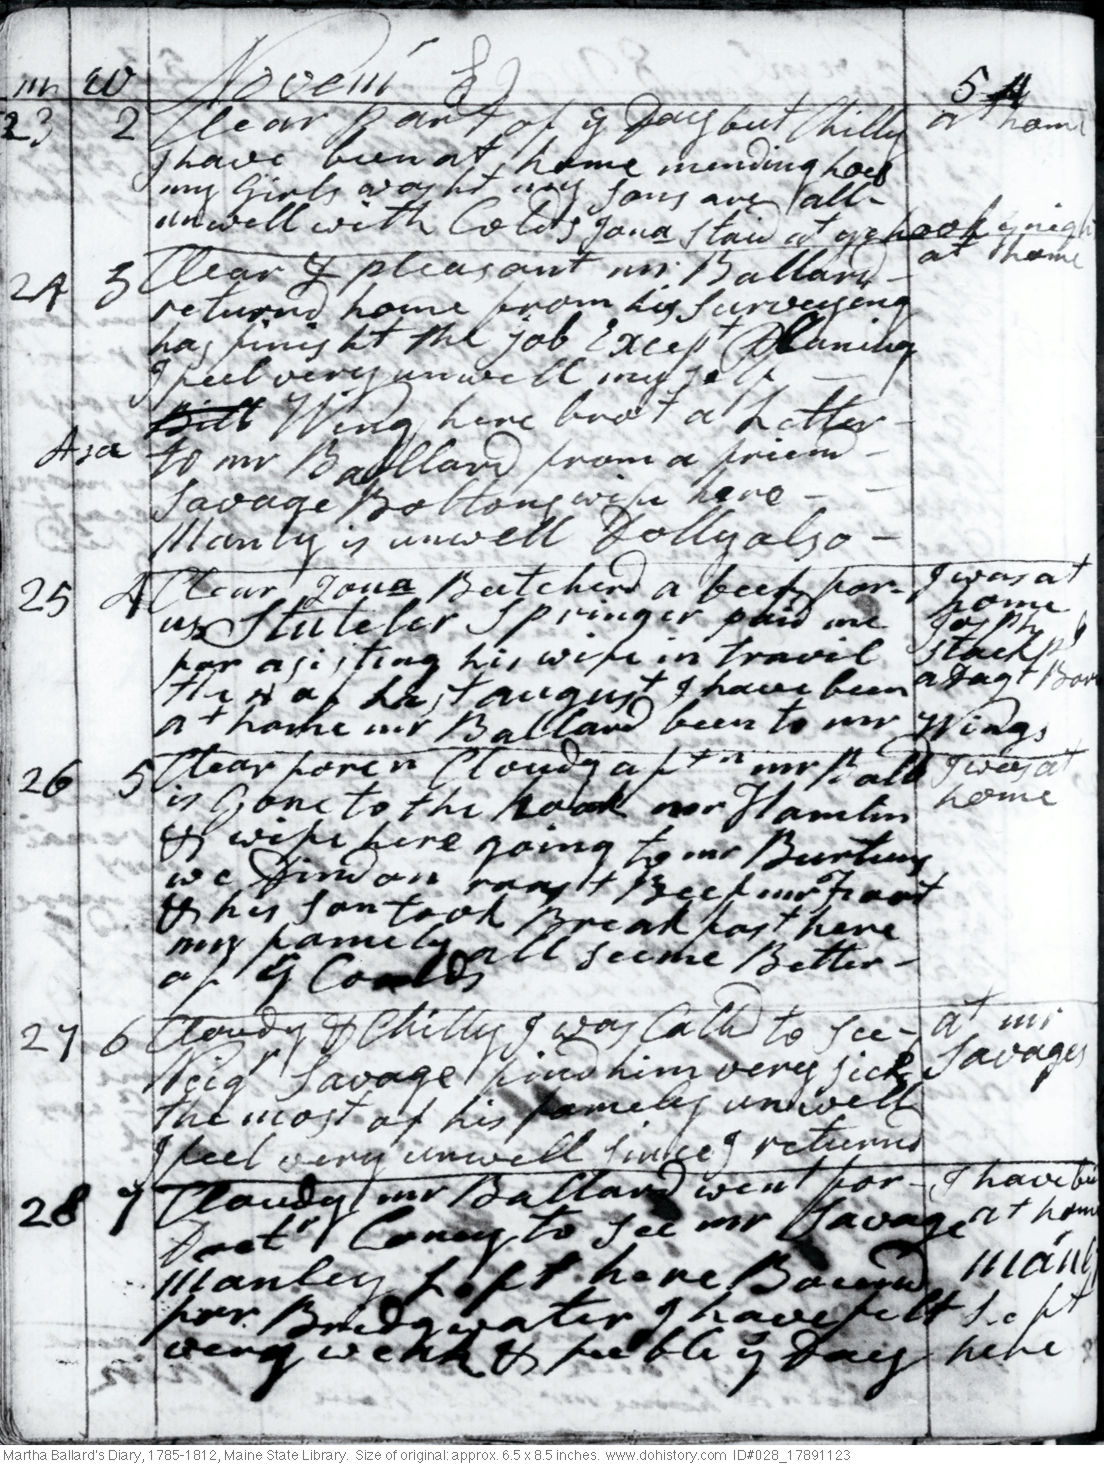 m w Novem 89 54
23 2 Clear Part of ye Day but Chilly at home
I have been at home mending hoes
my Girls washt my Sons are all
unwell with Colds Jona Staid at ye hook ye night
24 3 Clear & pleasant mr Ballard at home
returnd home from his Surveying
has finisht the job Except Planing
I feel very unwell my self
Bill Wing here brot a Letter
Asa to mr Ballard from a friend
Savage Boltons wife here
Manly is unwell Dolly also
25 4 Clear Jona Butcherd a beef for I was at
us Stuteler Springer paid me home
for asisting his wife in travil Stackpl
the of Last august I have been a Dagt Born
at home mr Ballard been to mr Wings
26 5 Clear foren Cloudy aftn mr Balld I was at
is Gone to the hook mr Hamlin home
& wife here going to mr Burtuns
we Dind on rast Beef mr Froot
& his Son took Break fast here
my famely all seeme Better
of ye Coalds
27 6 Cloudy & Chilly I was Calld to see at mr
Neigr Savage find him very sick Savages
the most of his famely unwell
I feel very unwell since I returnd
28 7 Cloudy mr Ballard went for I have bin
Doctr Coney to see mr Savage at home
Manley Left here Bound Manly
for Bridgwater I have felt Left
very weak & feeble ye Day here
Martha Ballard's Diary, 1785-1812, Maine State Library. Size of original: approx. 6.5 x 8.5 inches. www.dohistory.com ID#028_17891123